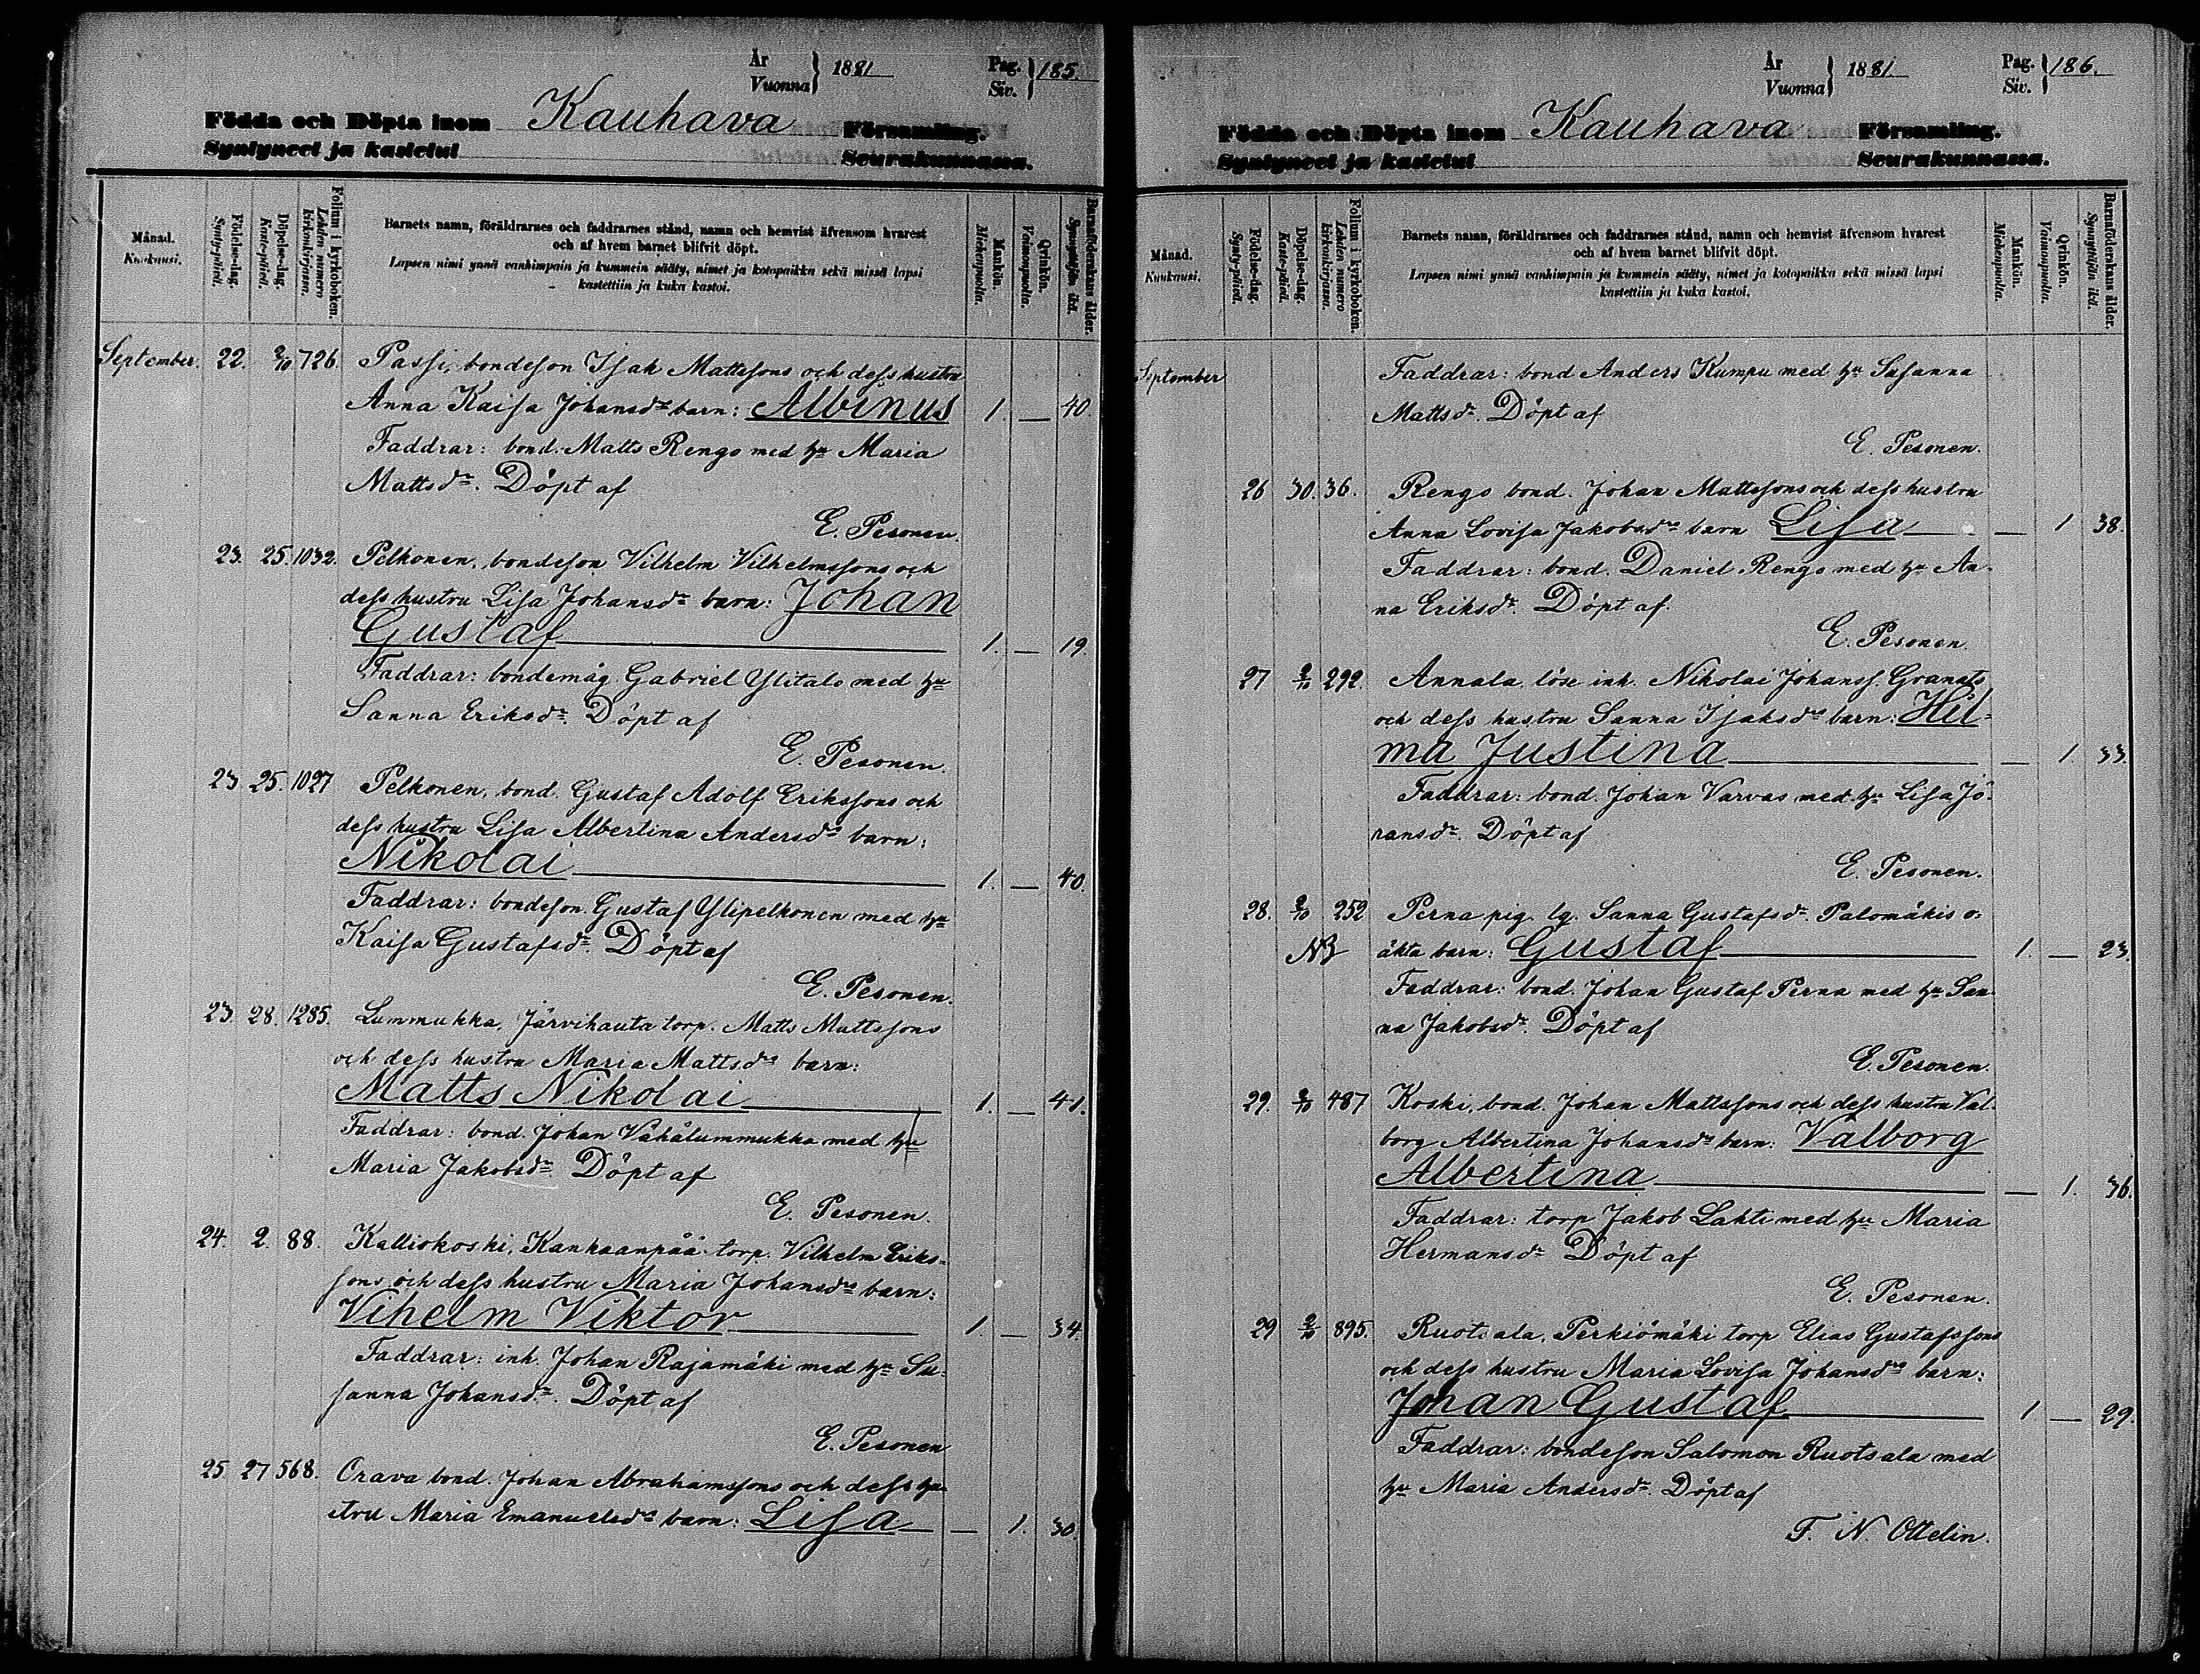 År
Vuonna } 1881
Pag.
Siv. } 185.
Födda och Döpta inom Kauhava Församling.
Syntyneet ja kastetut Seurakunnassa.
Månad.
Kuukausi.
Födelse-dag.
Synty-päivä.
Döpelse-dag.
Kaste-päivä.
Folium i kyrkoboken.
Lehden numero kirkonkirjassa.
Barnets namn, föräldrarnes och faddrarnes stånd, namn och hemvist äfvensom hvarest
och af hvem barnet blifvit döpt.
Lapsen nimi ynnä vanhimpain ja kummein sääty, nimet ja kotopaikka sekä missä lapsi
kastettiin ja kuka kastoi.
Mankön.
Miehenpuolta.
Qvinkön.
Vaimonpuolta.
Barnaföderskans ålder.
Synnyttäjän ikä.
September. 22. 2/10 726. Passi, bondeson Isak Mattssons och dess hustru
Anna Kaisa Johansdrs barn: Albinus 1. — 40.
Faddrar: bond. Matts Rengo med hu Maria
Mattsdr. Döpt af
E. Pesonen.
23. 25. 1032. Pelkonen, bondeson Vilhelm Vilhelmssons och
dess hustru Lisa Johansdrs barn: Johan
Gustaf 1. — 19.
Faddrar: bondemåg Gabriel Ylitalo med hu
Sanna Eriksdr. Döpt af
E. Pesonen.
23. 25. 1027 Pelkonen, bond. Gustaf Adolf Erikssons och
dess hustru Lisa Albertina Andersdrs barn:
Nikolai 1. — 40.
Faddrar: bondeson Gustaf Ylipelkonen med hu
Kaisa Gustafsdr. Döpt af
E. Pesonen.
23. 28. 1285. Lummukka, Järvihauta torp. Matts Mattssons
och dess hustru Maria Mattsdrs barn:
Matts Nikolai 1. — 41.
Faddrar: bond. Johan Vähälummukka med hu
Maria Jakobsdr. Döpt af
E. Pesonen.
24. 2. 88. Kalliokoski, Kankaanpää torp. Vilhelm Eriks-
sons och dess hustru Maria Johansdrs barn:
Vihelm Viktor 1. — 34.
Faddrar: inh. Johan Rajamäki med hu Su-
sanna Johansdr. Döpt af
E. Pesonen
25. 27 568. Orava bond. Johan Abrahamssons och dess hu-
stru Maria Emanuelsdrs barn: Lisa — 1. 30.
År
Vuonna } 1881
Pag.
Siv. } 186.
Födda och Döpta inom Kauhava Församling.
Syntyneet ja kastetut Seurakunnassa.
Månad.
Kuukausi.
Födelse-dag.
Synty-päivä.
Döpelse-dag.
Kaste-päivä.
Folium i kyrkoboken.
Lehden numero kirkonkirjassa.
Barnets namn, föräldrarnes och faddrarnes stånd, namn och hemvist äfvensom hvarest
och af hvem barnet blifvit döpt.
Lapsen nimi ynnä vanhimpain ja kummein sääty, nimet ja kotopaikka sekä missä lapsi
kastettiin ja kuka kastoi.
Mankön.
Miehenpuolta.
Qvinkön.
Vaimonpuolta.
Barnaföderskans ålder.
Synnyttäjän ikä.
September Faddrar: bond Anders Kumpu med hu Susanna
Mattsdr. Döpt af
E. Pesonen.
26 30. 36. Rengo bond. Johan Mattssons och dess hustru
Anna Lovisa Jakobsdrs barn Lisa — 1 38.
Faddrar: bond. Daniel Rengo med hu An-
na Eriksdr. Döpt af
E. Pesonen.
27 2/10 292. Annala löse inh. Nikolai Johanss. Granats
och dess hustru Sanna Isaksdrs barn: Hil-
ma Justina — 1. 33.
Faddrar: bond. Johan Varvas med hu Lisa Jö-
ransdr. Döpt af
E. Pesonen.
28. 2/10 252 Perna pig. lg. Sanna Gustafsdr. Palomäkis o-
NB äkta barn: Gustaf 1. — 23.
Faddrar: bond. Johan Gustaf Perna med hu San-
na Jakobsdr. Döpt af
E. Pesonen.
29. 2/10 487 Koski, bond. Johan Mattssons och dess hustru Val-
borg Albertina Johansdrs barn: Valborg
Albertina — 1. 36.
Faddrar: torp Jakob Lahti med hu Maria
Hermansdr Döpt af
E. Pesonen.
29 2/10 895. Ruotsala, Perkiömäki torp Elias Gustafssons
och dess hustru Maria Lovisa Johansdrs barn:
Johan Gustaf 1 — 29.
Faddrar: bondeson Salomon Ruotsala med
hu Maria Andersdr. Döpt af
F. N. Ottelin.